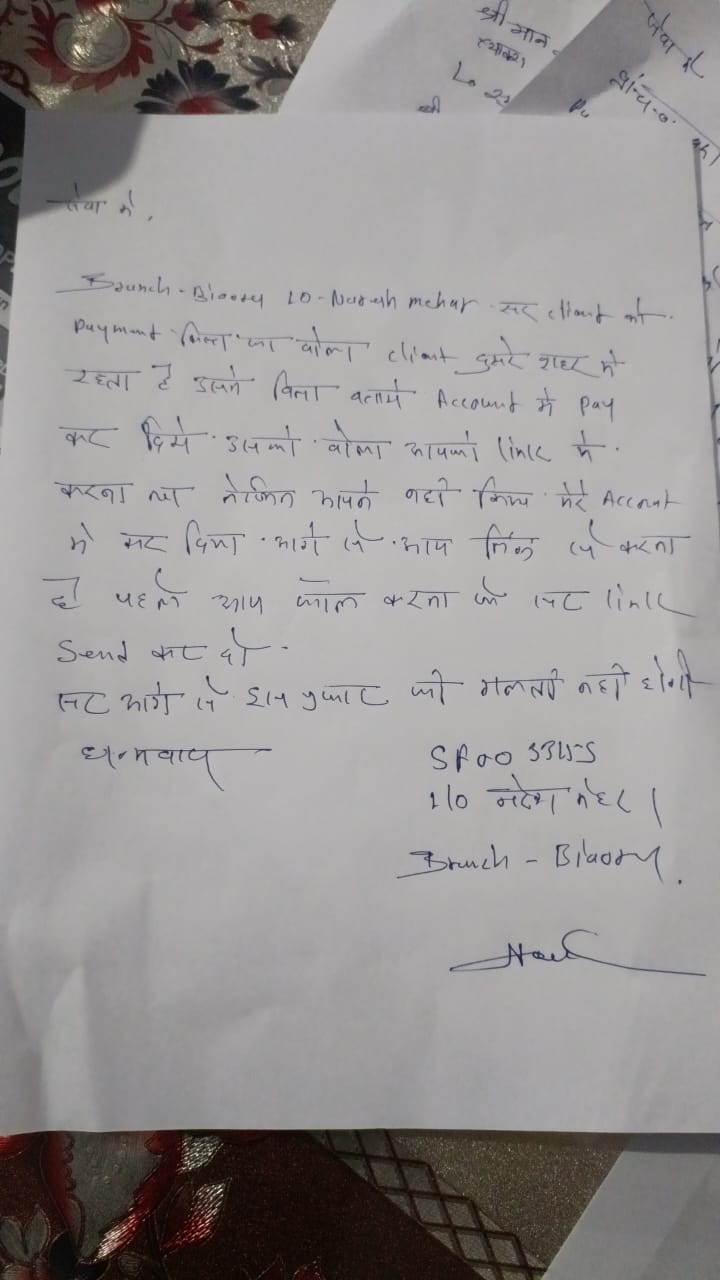 श्री मान
सेवा में
सेवा मे,
Branch - Biaora LO - Naresh mehar सर client को
Payment लिंक का बोला client दुसरे शहर मे
रहता है उसने बिना बताये Account मे Pay
कर दिये उसको बोला आपको link से
करना था लेकिन आपने नही किया मेरे Account
मे कर दिया आगे से आप लिंक से करना
है पहले आप कॉल करना में सर link
Send कर दो
सर आगे से इस प्रकार की गलती नही होगी
धन्यवाद
L/O नरेश मेहर
Branch - Biaora